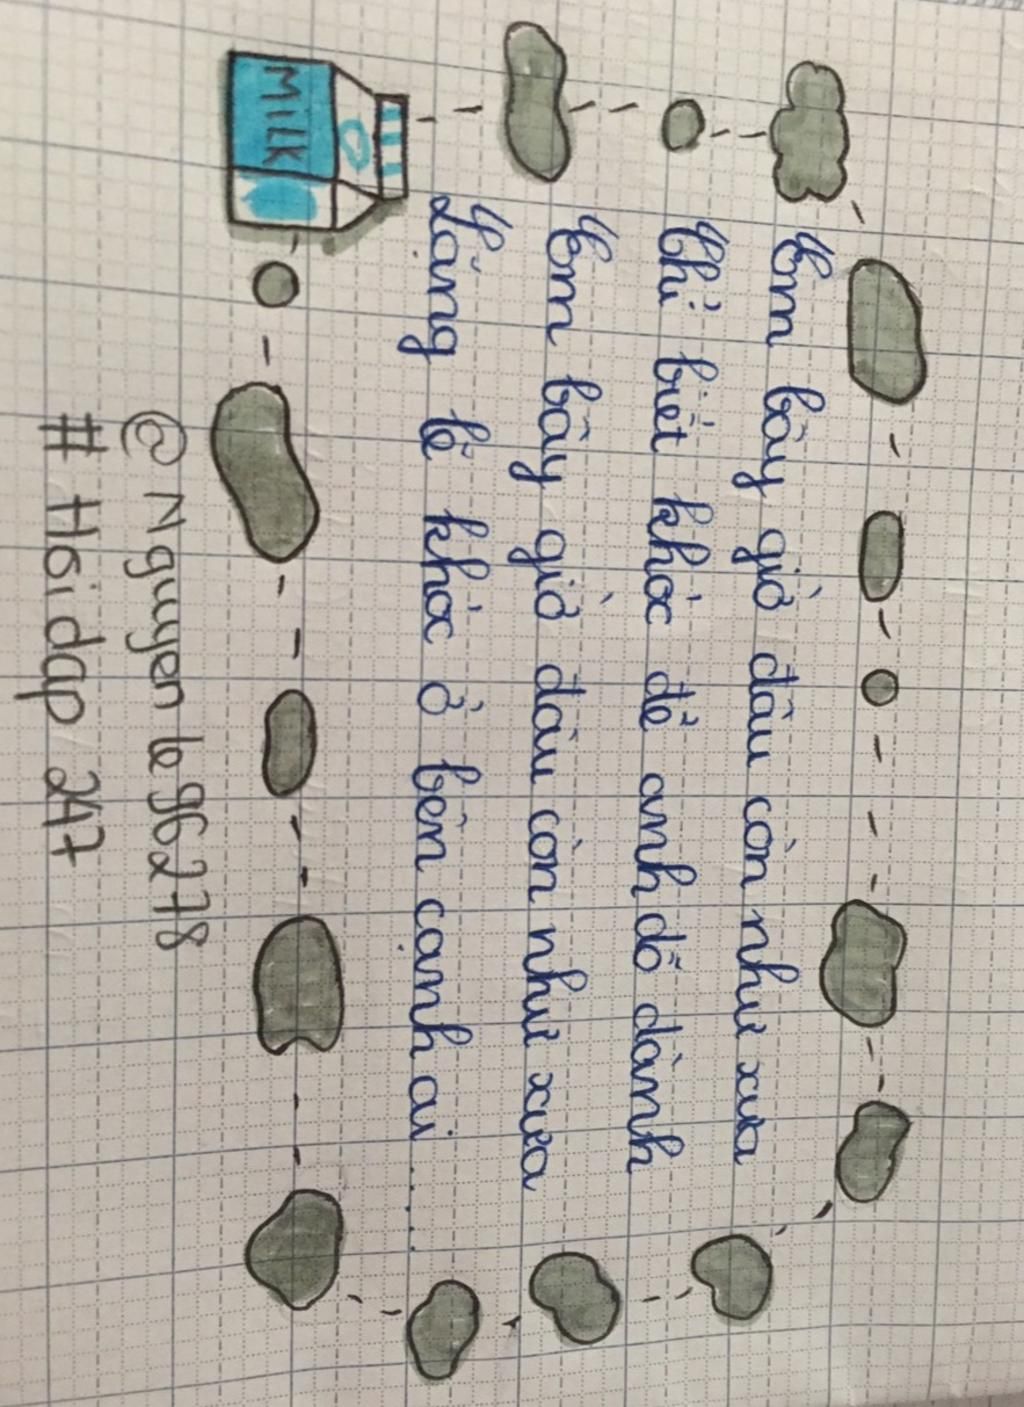 Em bây giờ đâu còn như xưa
Chỉ biết khóc để anh dỗ dành
Em bây giờ đâu còn như xưa
Lặng lẽ khóc ở bên cạnh ai.......
Milk
@ Nguyen le96278
# Hoidap 247